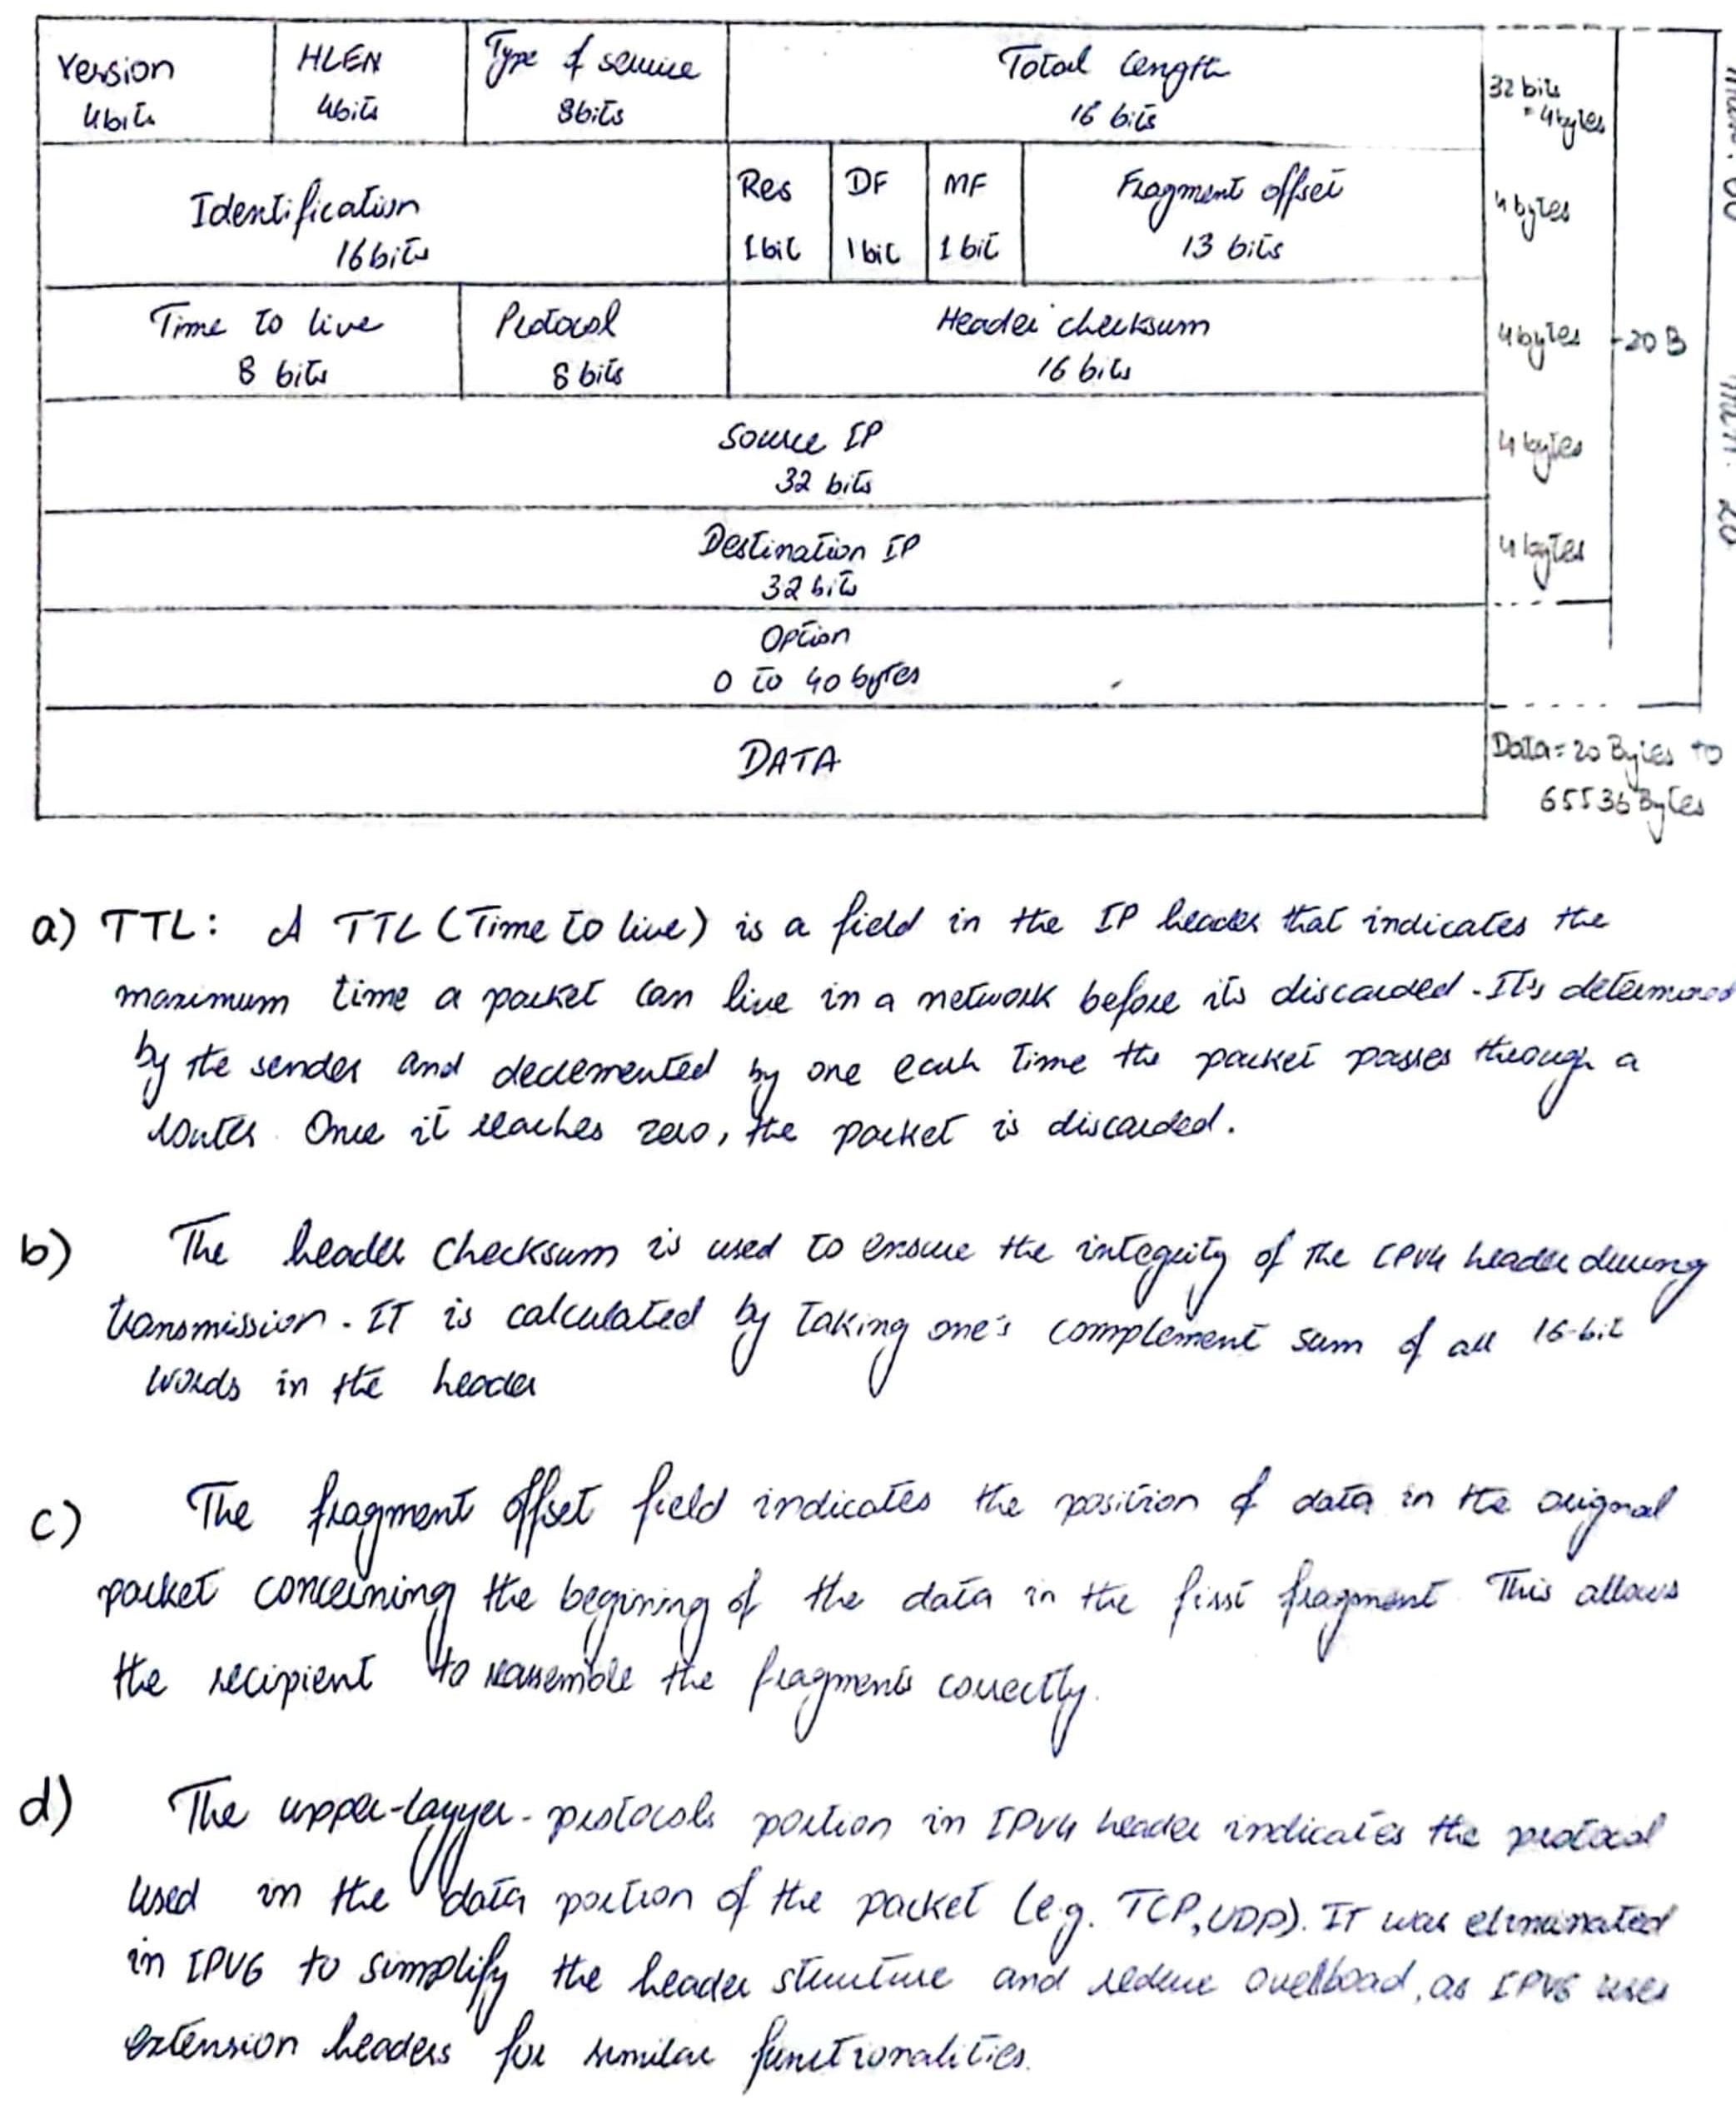 Version HLEN Type of service Total length 32 bits
4bits 4bits 8bits 16 bits = 4bytes
Res DF MF Fragment offset
Identification 4bytes
16bits 1bit 1bit 1 bit 13 bits
Time to live Protocol Header checksum 4bytes 20 B
8 bits 8 bits 16 bits
Source IP 4 bytes
32 bits
Destination IP 4 bytes
32 bits
Option
0 to 40 bytes
DATA Data = 20 Bytes to
65536 Bytes
a) TTL: A TTL (Time to live) is a field in the IP header that indicates the
maximum time a packet can live in a network before its discarded. It's determined
by the sender and decremented by one each time the packet passes through a
router. Once it reaches zero, the packet is discarded.
b) The header checksum is used to ensure the integrity of the IPV4 header during
transmission. IT is calculated by taking one's complement sum of all 16-bit
words in the header
c) The fragment offset field indicates the position of data in the orignal
packet concerning the begining of the data in the first fragment. This allows
the recipient to reassemble the fragments correctly.
d) The upper-layyer-protocols portion in IPV4 header indicates the protocol
used in the data portion of the packet (e.g. TCP, UDP). IT was eliminated
in IPV6 to simplify the header structure and reduce overload, as IPV6 uses
extension headers for similar functionalities.